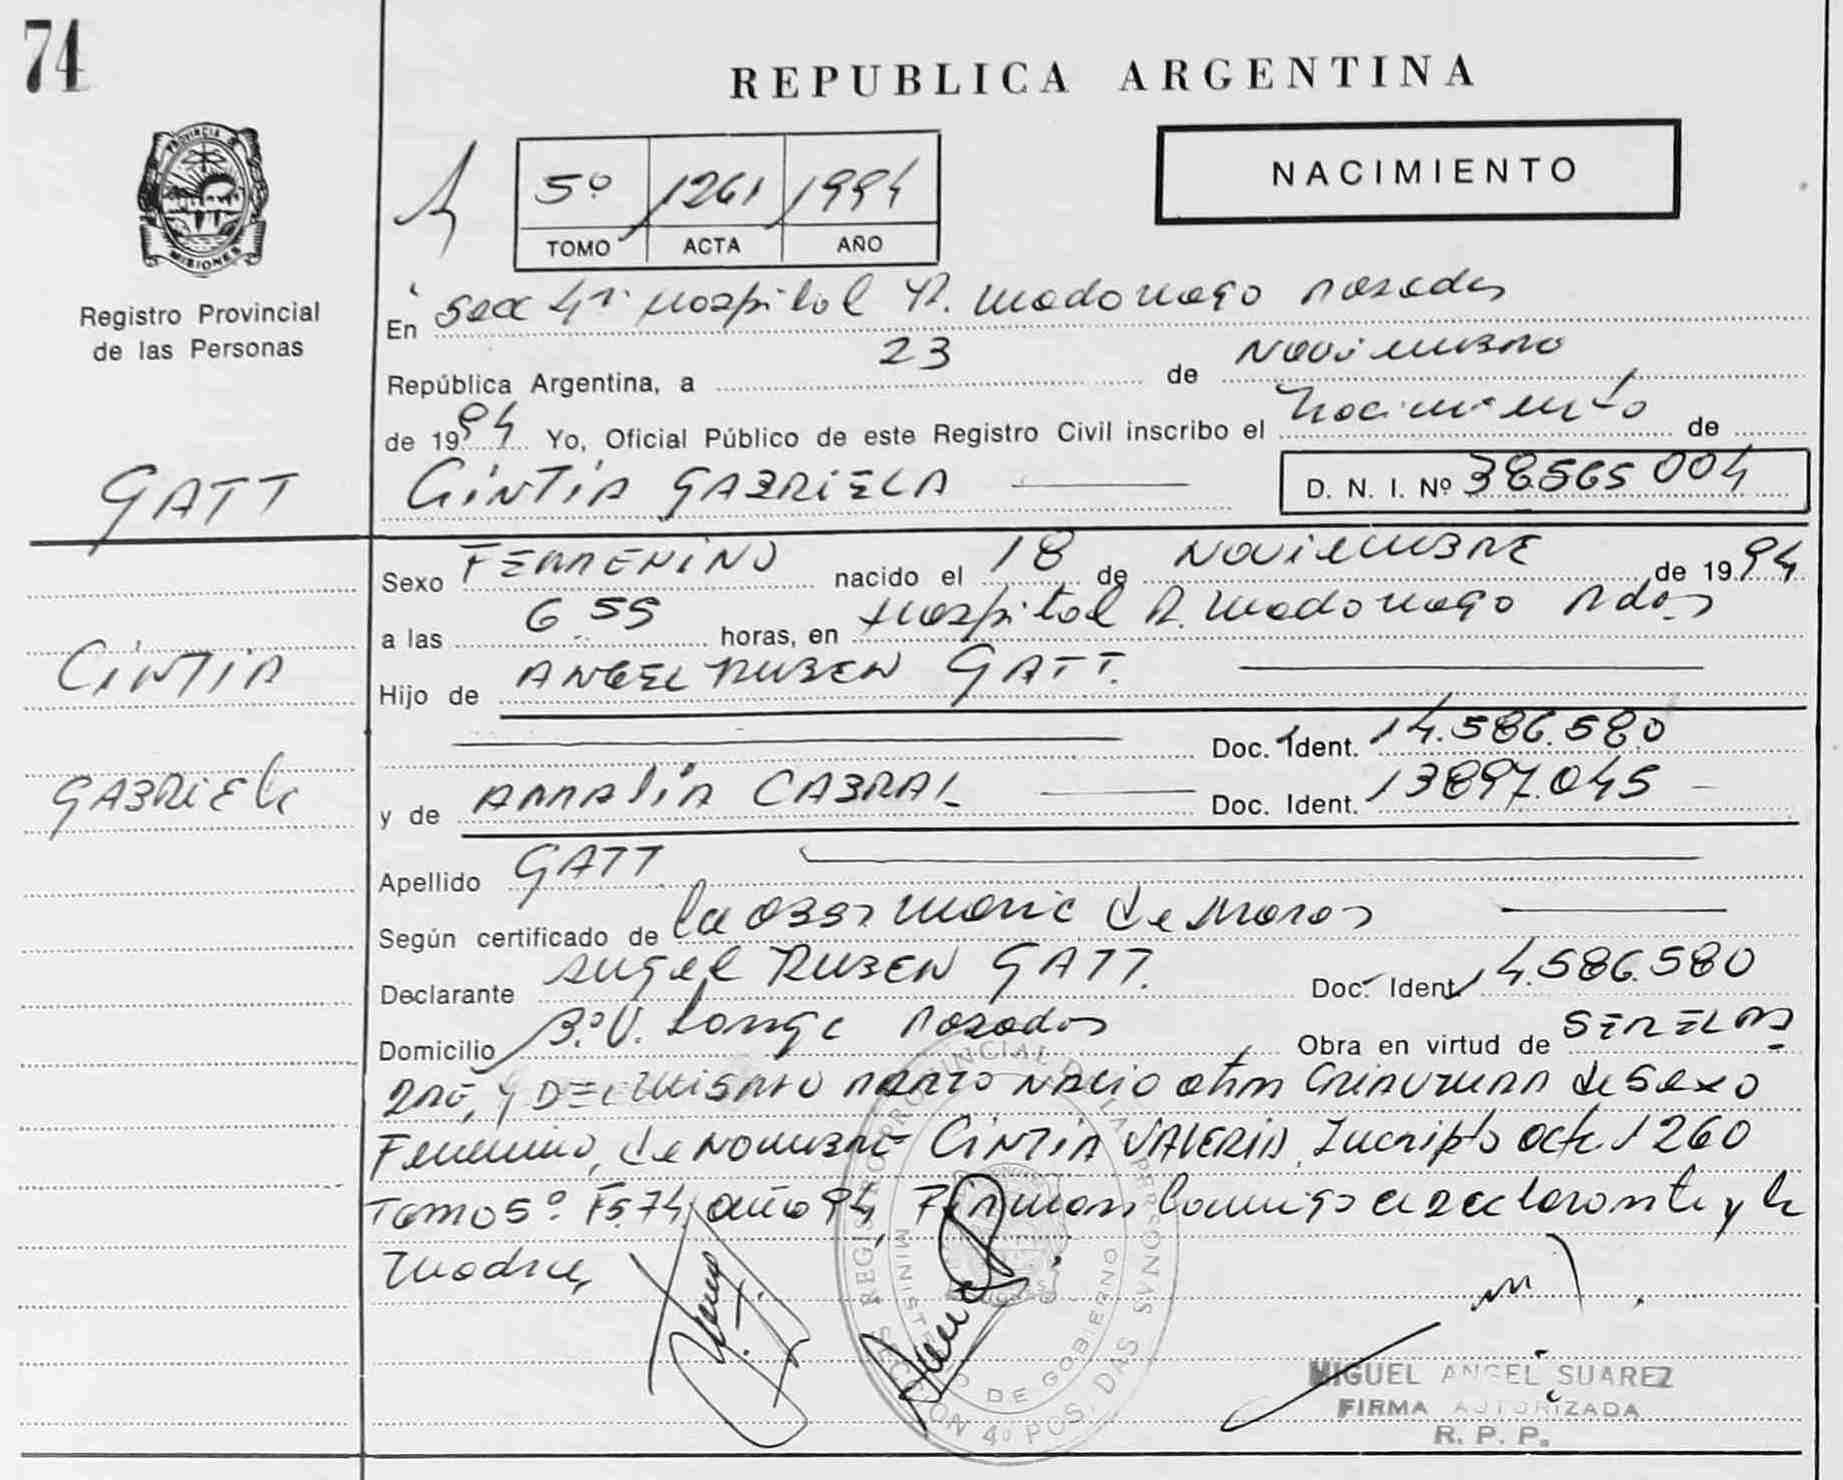 74
REPUBLICA ARGENTINA
5º 1261 1994
TOMO ACTA AÑO
NACIMIENTO
PROVINCIA DE MISIONES
Registro Provincial
de las Personas
En Secc 4ª Hospital R. Madariaga Posadas
República Argentina, a 23 de Noviembre
de 1994 Yo, Oficial Público de este Registro Civil inscribo el Nacimiento de
GATT CINTIA GABRIELA D. N. I. Nº 38.565 004
Sexo FEMENINO nacido el 18 de NOVIEMBRE de 1994
a las 6 55 horas, en Hospital R. Madariaga Pdas
CINTIA
Hijo de ANGEL RUBEN GATT.
Doc. Ident. 14.586.580
GABRIELA
y de AMALIA CABRAL Doc. Ident. 13897.045
Apellido GATT
Según certificado de la Obst Maria de
Declarante Angel RUBEN GATT. Doc. Ident. 14.586.580
Domicilio Bº V. Posadas Obra en virtud de SER EL PA
DRE, Y DEL MISMO PARTO NACIO OTRA CRIATURA de Sexo
Femenino, de NOMBRE CINTIA VALERIA, Incripto acta 1260
Tomo 5º Fs. 74, año 94, Firman conmigo el declarante y la
Madre,
REGISTRO PROVINCIAL DE LAS PERSONAS
MINISTERIO DE GOBIERNO
SECCION 4º POSADAS
MIGUEL ANGEL SUAREZ
FIRMA AUTORIZADA
R. P. P.